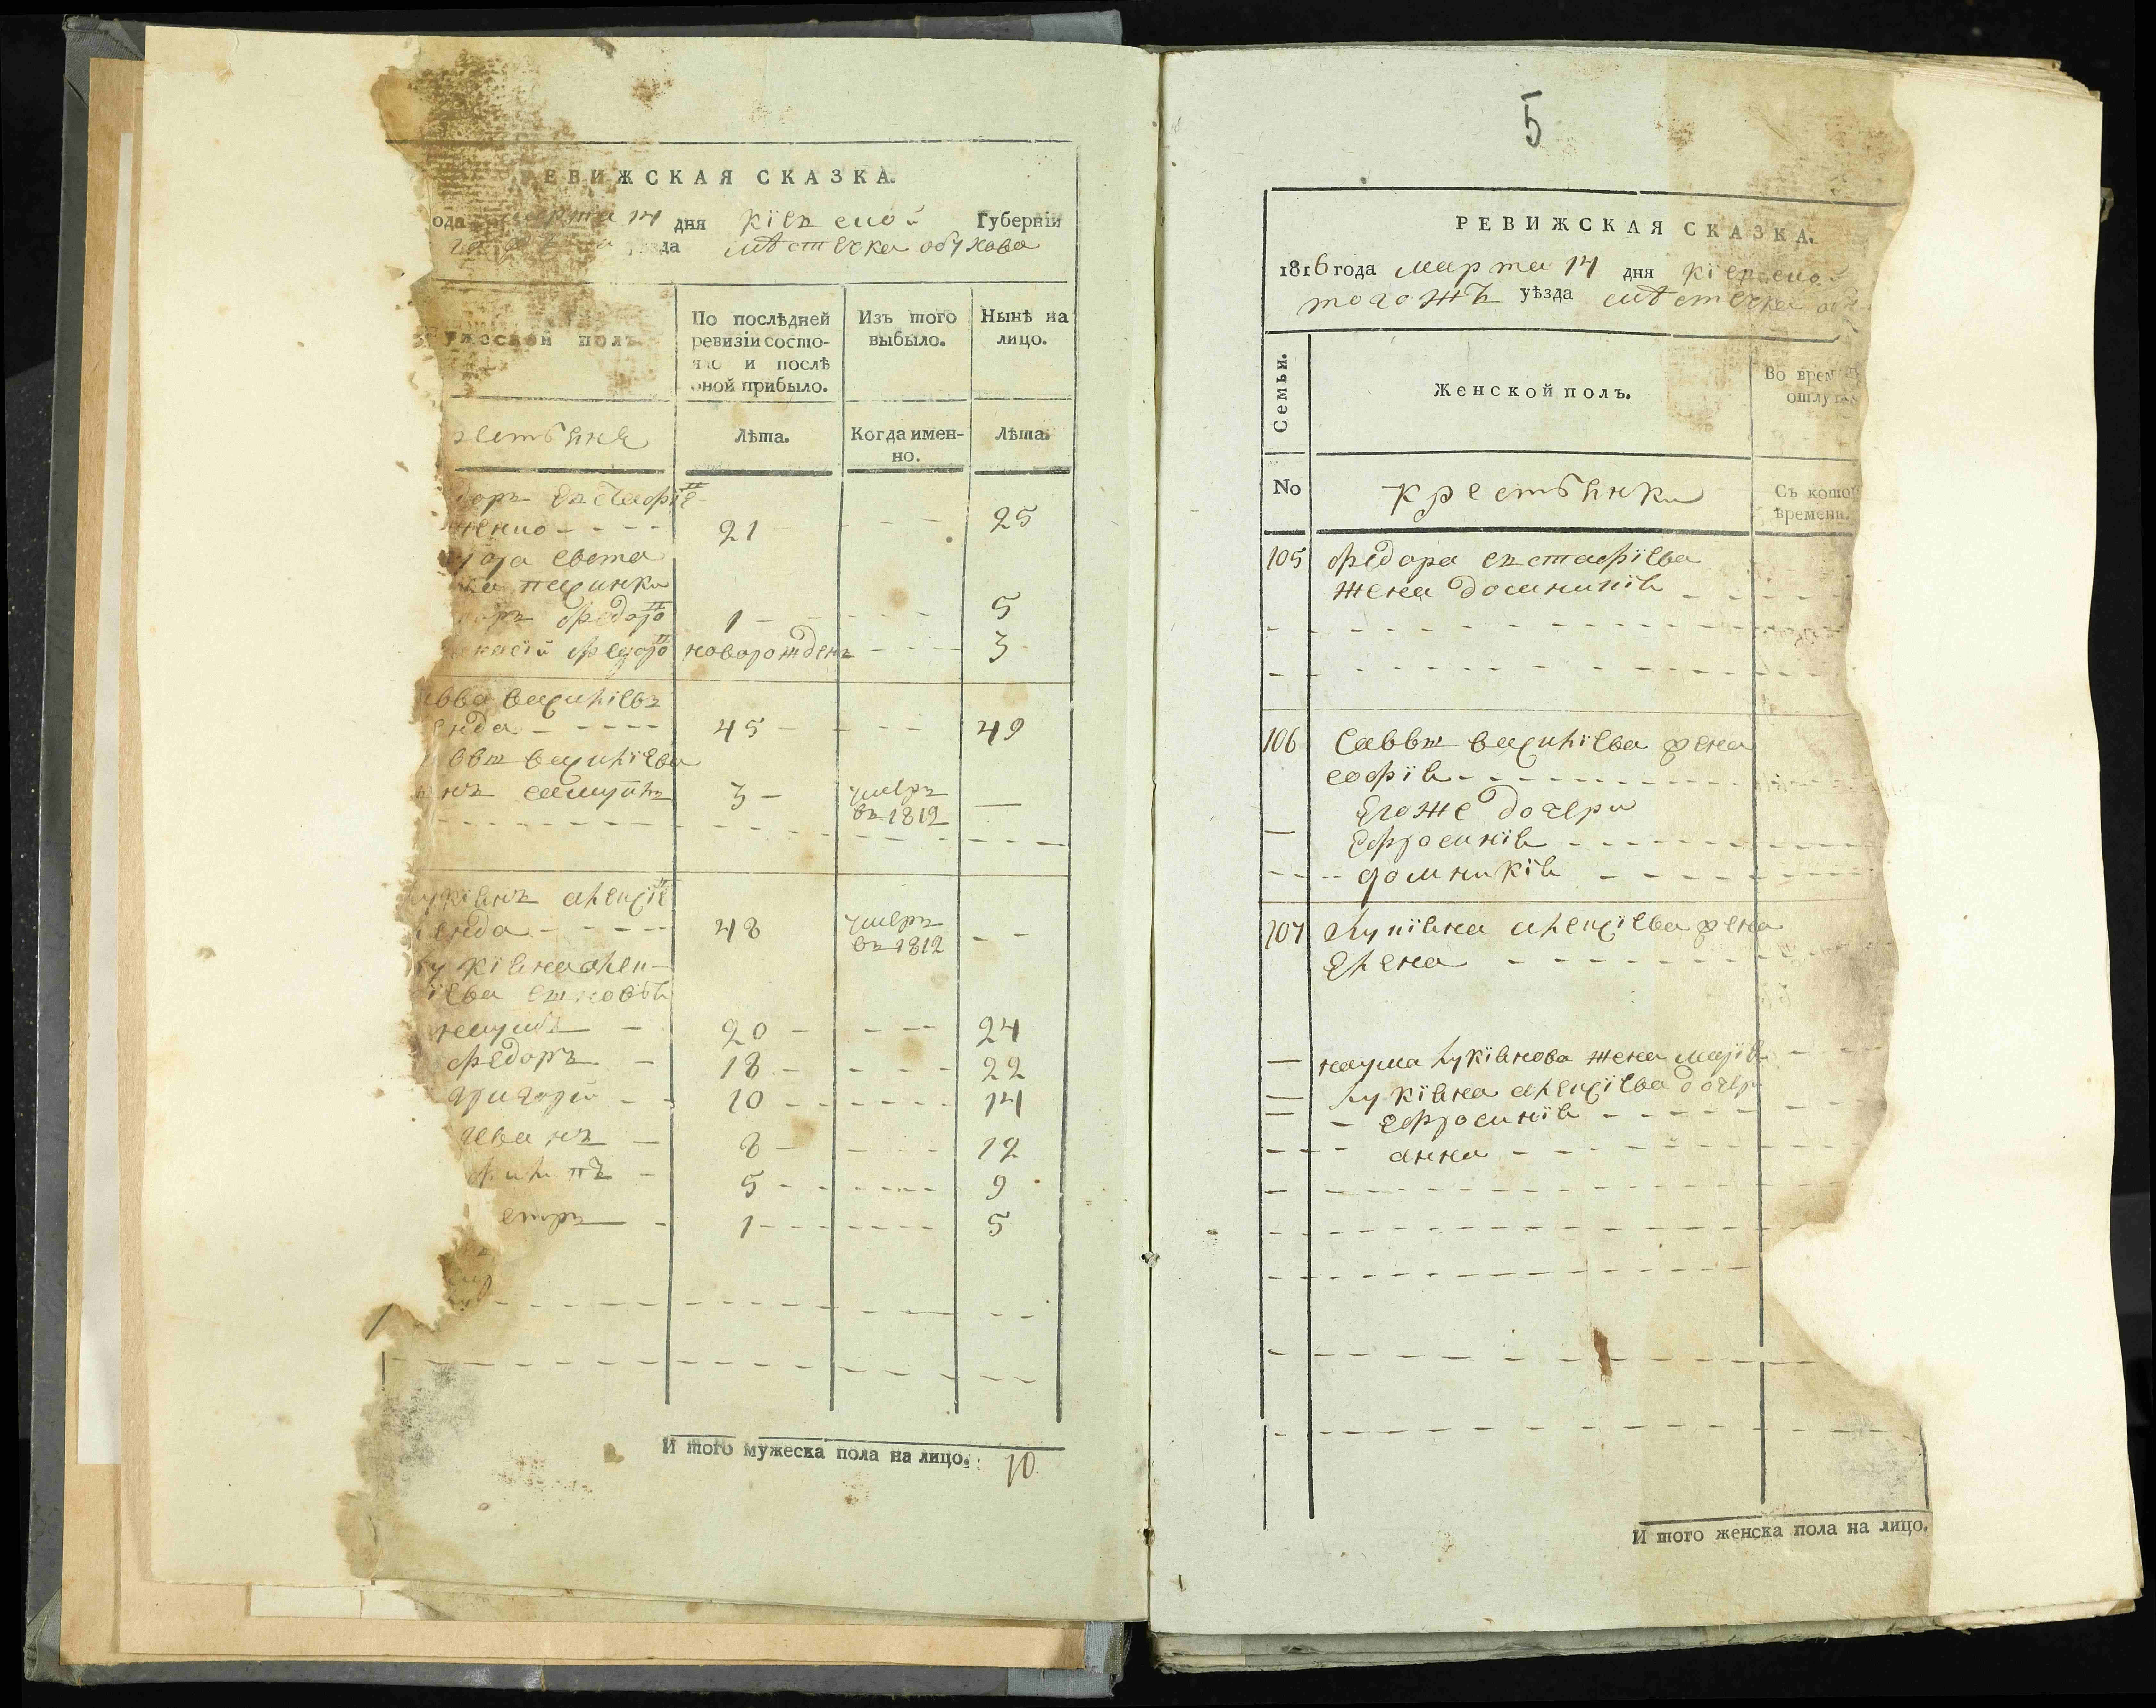 РЕВИЖСКАЯ СКАЗКА.
ода марта 14 дня Кіевской Губерніи
уѣзда мѣстечка обухова
ужеской полъ
По послѣдней ревизіи состо-
яло и послѣ
оной прибыло.
Изъ того
выбыло.
Нынѣ на
лицо.
рестьяне
Лѣта.
Когда имен-
но.
Лѣта.
доръ Евстафіе
21 25
1 5
Федоро новорожденъ 3
авва Василіевъ
енда 45 49
аввы василіева
нъ самуилъ 3 умеръ
въ 1812
укіянъ алексіе
енда 48 умеръ
въ 1812
укіяна алек-
іева сыновья
наумъ 20 24
федоръ 18 22
григорій 10 14
иванъ 8 12
филипъ 5 9
1 5
И того мужеска пола на лицо. 10
5
РЕВИЖСКАЯ СКАЗКА.
1816 года марта 14 дня Кіевской
тогожъ уѣзда мѣстечка обу
Семьи.
Женской полъ.
Во время
отлу
No
крестьянки
Съ котор
времени.
105 федора евстафіева
жена домникія
106 саввы василіева жена
софія
Егоже дочери
Ефросинія
домникія
107 лукіяна алексіева жена
Елена
наума лукіянова жена марія
лукіяна алексіева дочери
Ефросинія
анна
И того женска пола на лицо.